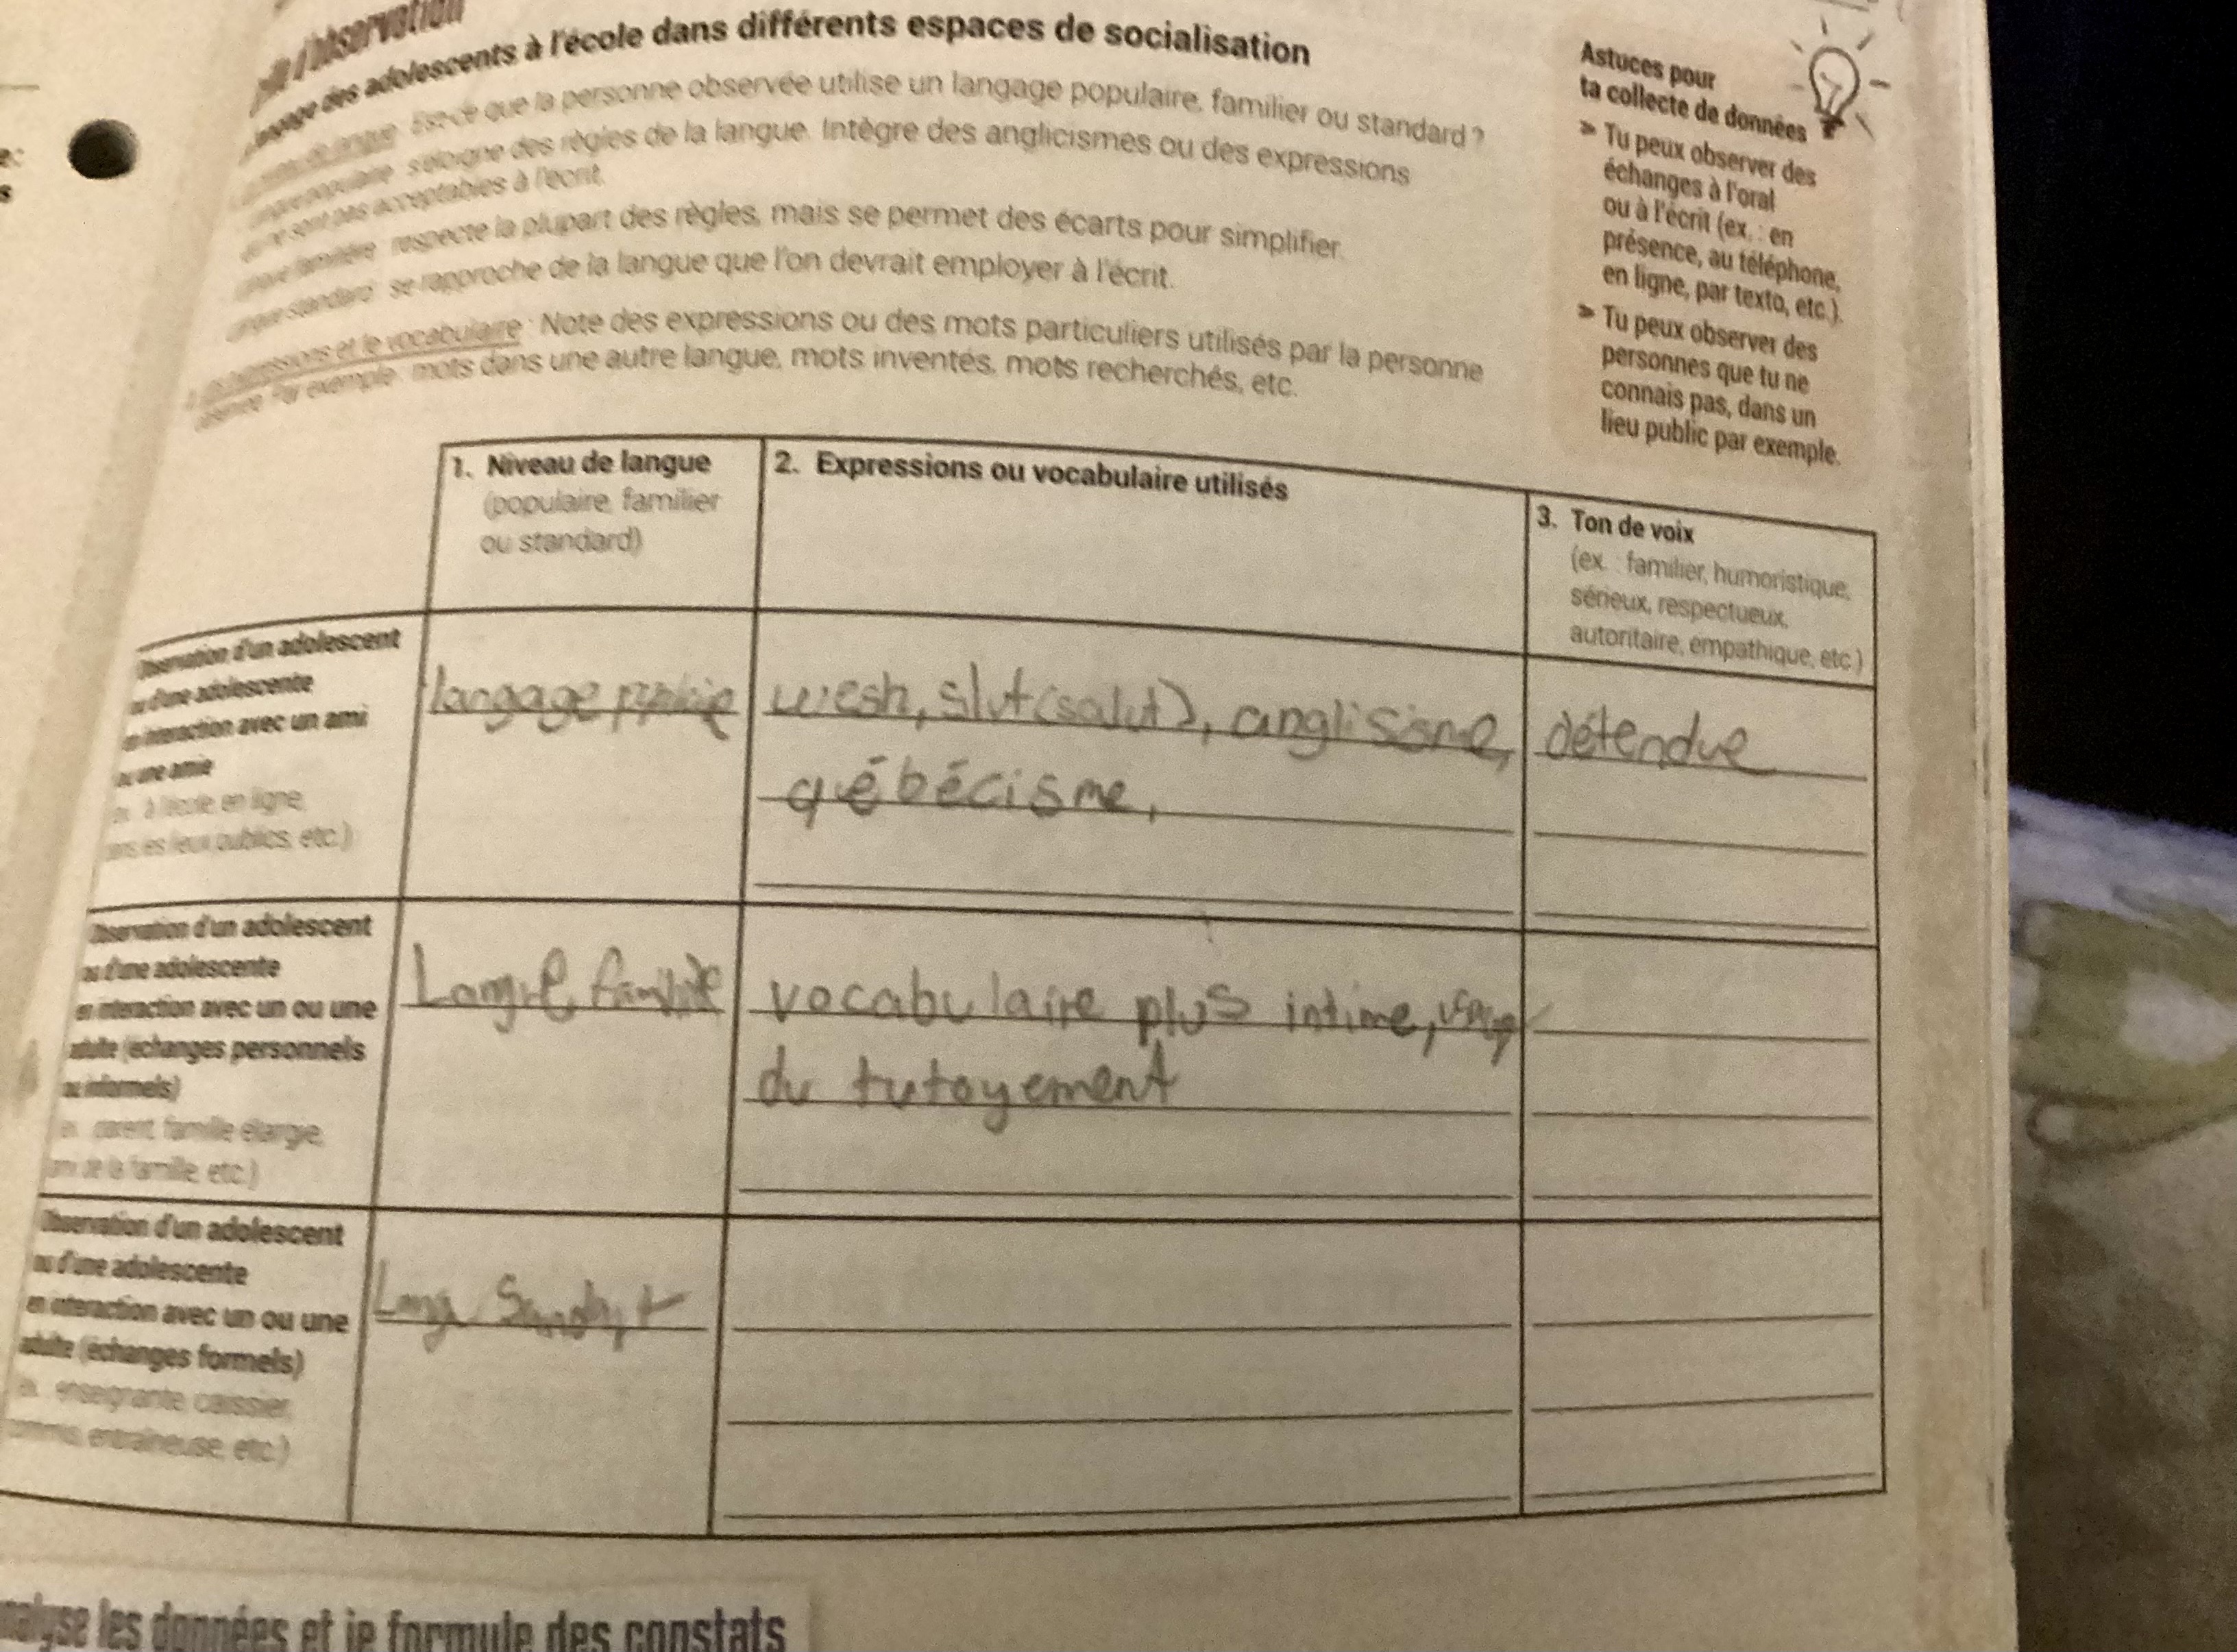 grille d'observation
langage des adolescents à l'école dans différents espaces de socialisation
Est-ce que la personne observée utilise un langage populaire, familier ou standard ?
langue populaire : s'éloigne des règles de la langue. Intègre des anglicismes ou des expressions
qui ne sont pas acceptables à l'écrit.
langue familière : respecte la plupart des règles, mais se permet des écarts pour simplifier.
langue standard : se rapproche de la langue que l'on devrait employer à l'écrit.
expressions et le vocabulaire : Note des expressions ou des mots particuliers utilisés par la personne
observée. Par exemple : mots dans une autre langue, mots inventés, mots recherchés, etc.
Astuces pour
ta collecte de données
➢ Tu peux observer des
échanges à l'oral
ou à l'écrit (ex. : en
présence, au téléphone,
en ligne, par texto, etc.).
➢ Tu peux observer des
personnes que tu ne
connais pas, dans un
lieu public par exemple.
1. Niveau de langue
(populaire, familier
ou standard)
2. Expressions ou vocabulaire utilisés
3. Ton de voix
(ex. : familier, humoristique,
sérieux, respectueux,
autoritaire, empathique, etc.)
Observation d'un adolescent
ou d'une adolescente
en interaction avec un ami
ou une amie
(ex. : à l'école, en ligne,
dans les lieux publics, etc.)
langage
wesh, slut (salut), anglisisme,
québécisme,
détendue
Observation d'un adolescent
ou d'une adolescente
en interaction avec un ou une
adulte (échanges personnels
ou informels)
(ex. : parent, famille élargie,
ami de la famille, etc.)
Langue
vocabulaire plus intime,
du tutoyement
Observation d'un adolescent
ou d'une adolescente
en interaction avec un ou une
adulte (échanges formels)
(ex. : enseignante, caissier,
commis, entraîneuse, etc.)
analyse les données et je formule des constats